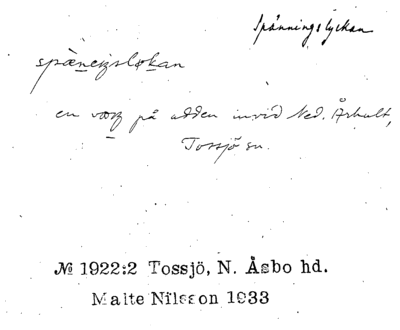 Spänningslyckan
spæneŋsløkan
en vång på udden invid Ned. Århult,
Tossjö sn.
№ 1922:2 Tossjö, N. Åsbo hd.
Malte Nilsson 1933